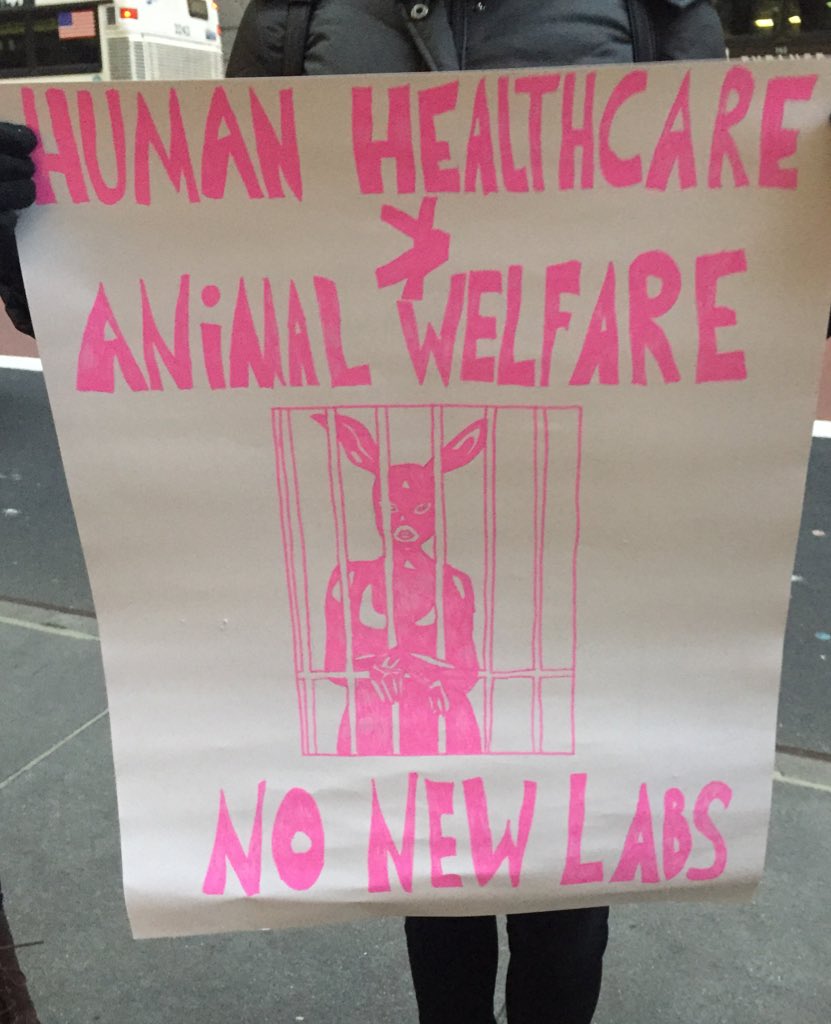 HUMAN HEALTHCARE
ANiMAL WELFARE
NO NEW LABS